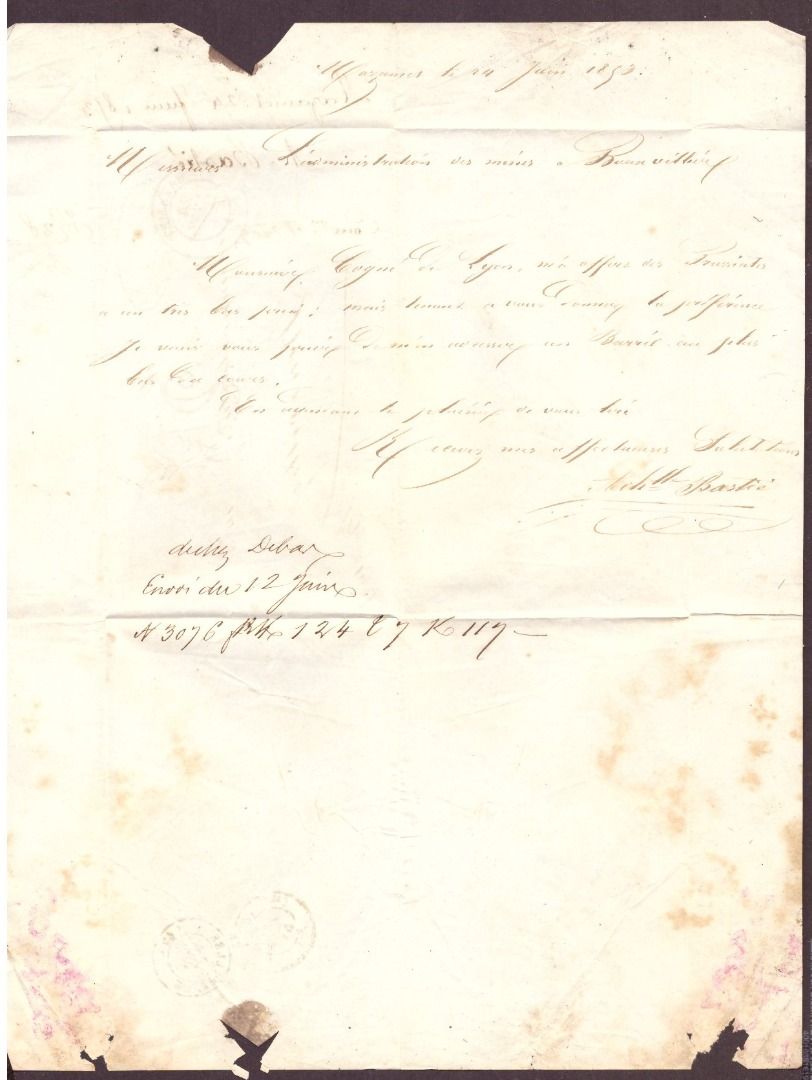 Mazamet le 24 Juin 1853.
Messieurs L'administration des mines a Bouxvillier
Monsieur Cogné de Lyon, m'a offert des Prussiates
a un tres bas prix; mais tenant a vous donner la préférence
Je viens vous prier de m'en adresser un Barril au plus
bas du cours.
En attendant le plaisir de vous lire
Recevez mes affectueuses Salutations
Bastié
de chez Debar
Envoi du 12 Juin
N 3076 124 T 7 K 117 —